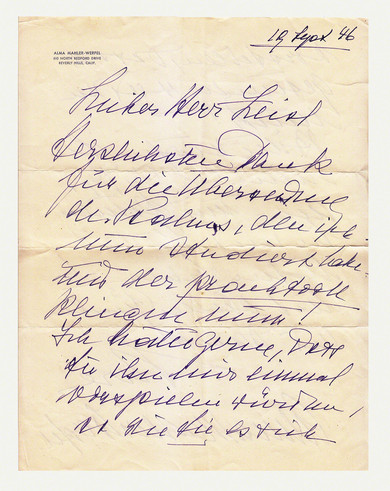 ALMA MAHLER-WERFEL
610 NORTH BEDFORD DRIVE
BEVERLY HILLS, CALIF.
19 Sept 46
Lieber Herr Zeisl
herzlichsten Dank
für die Übersendung
des Psalms, den ich
nun studiert habe
und der prachtvoll
klingen muss!
Ich hätte gerne, dass
Sie ihn mir einmal
vorspielen würden,
Sie